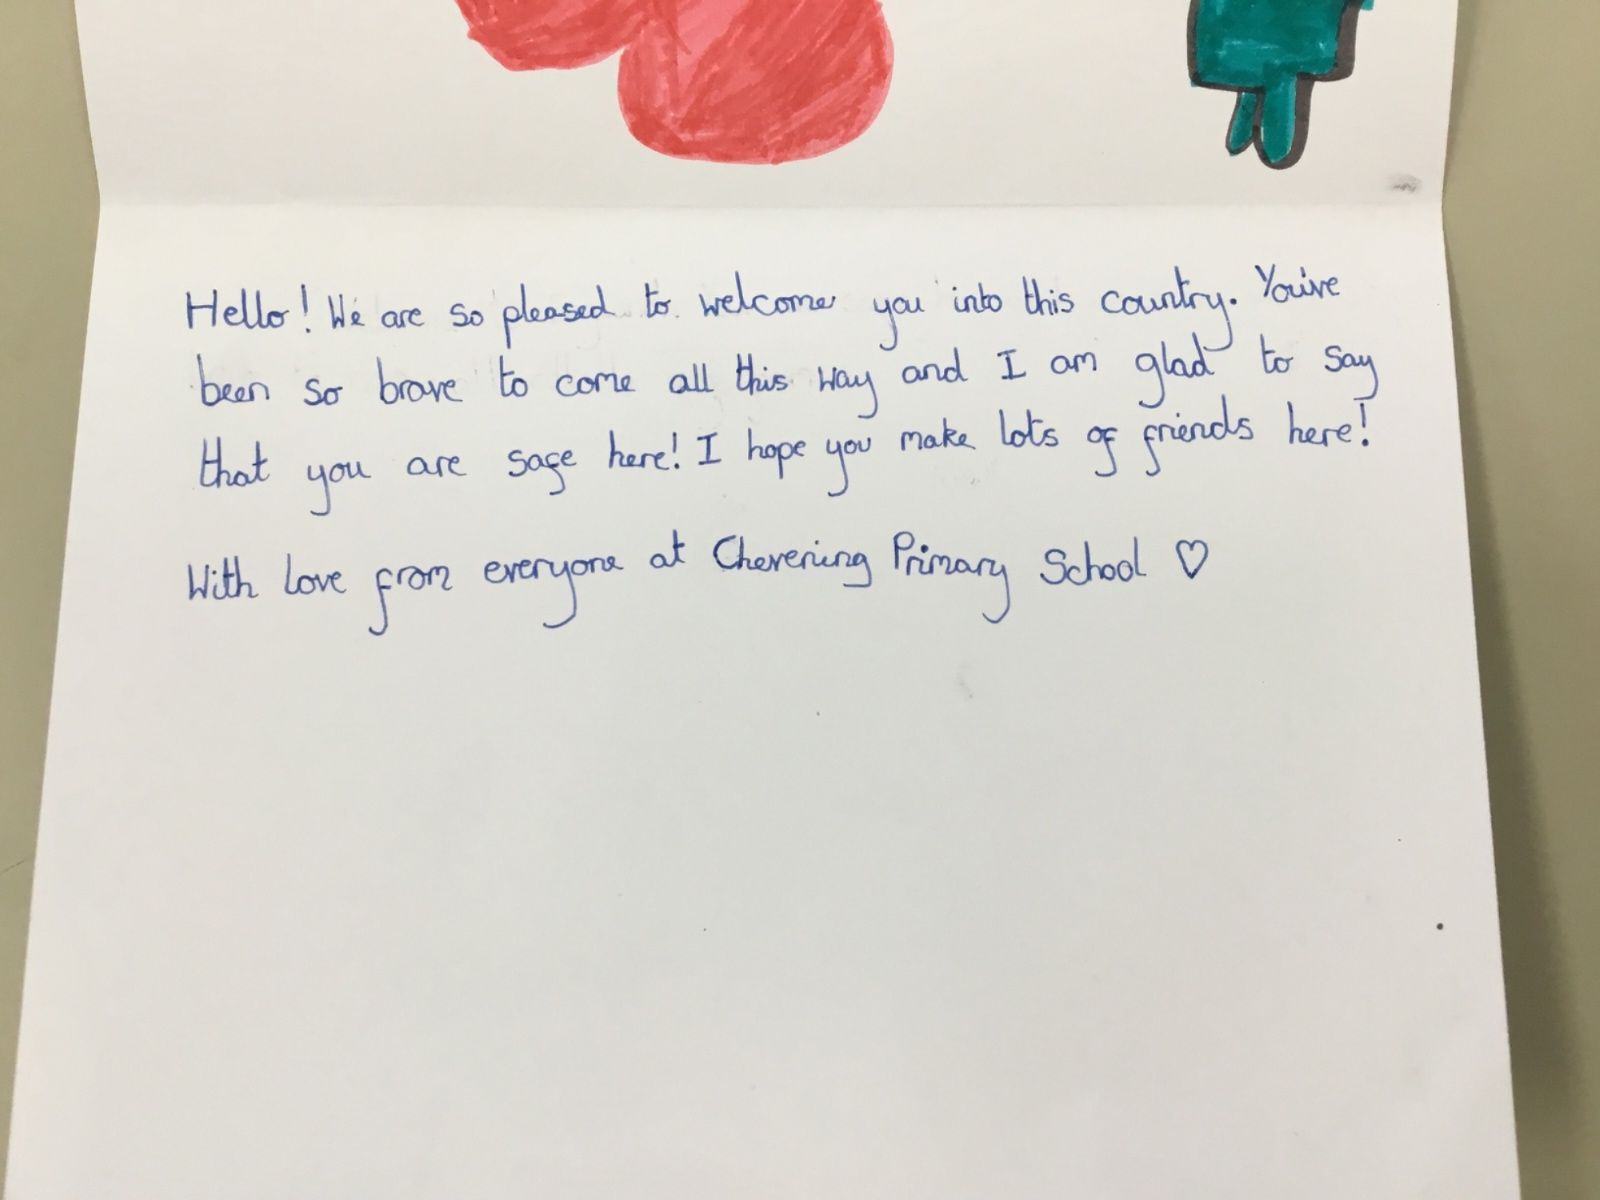 Hello! We are so pleased to welcome you into this country. You've
been so brave to come all this way and I am glad to say
that you are safe here! I hope you make lots of friends here!
With love from everyone at Chevening Primary School ♡